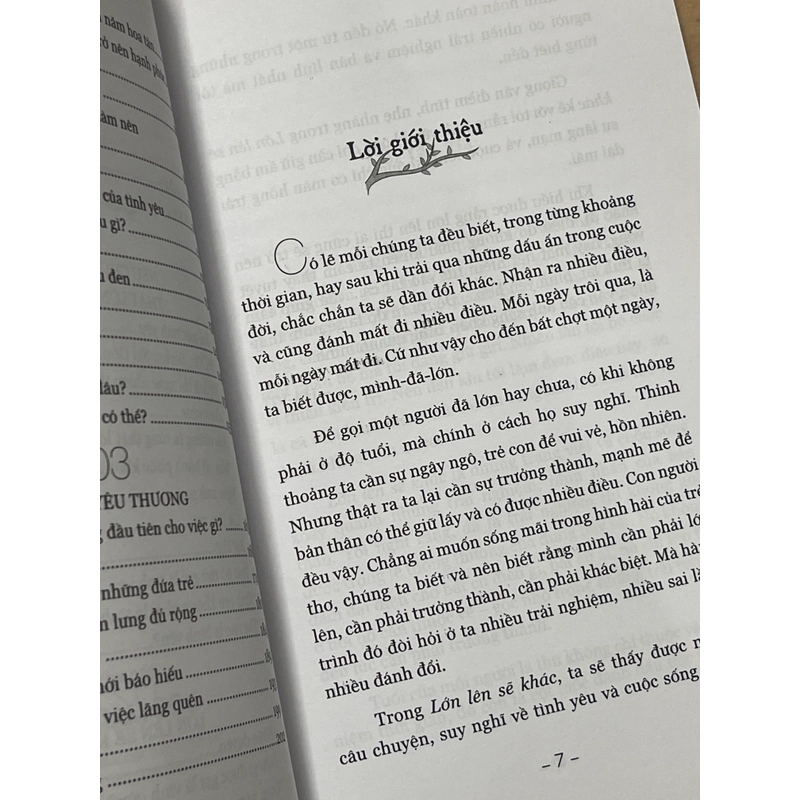 năm hoa
ở nên hạnh
nên
của tình yêu
gì?
đen
lâu?
có thể?
03
YÊU THƯƠNG
đầu tiên cho việc gì?
những đứa trẻ
lưng đủ rộng
báo hiếu
việc lãng quên
199
202
Lời giới thiệu
Có lẽ mỗi chúng ta đều biết, trong từng khoảng
thời gian, hay sau khi trải qua những dấu ấn trong cuộc
đời, chắc chắn ta sẽ dần đổi khác. Nhận ra nhiều điều,
và cũng đánh mất đi nhiều điều. Mỗi ngày trôi qua, là
mỗi ngày mất đi. Cứ như vậy cho đến bất chợt một ngày,
ta biết được, mình-đã-lớn.
Để gọi một người đã lớn hay chưa, có khi không
phải ở độ tuổi, mà chính ở cách họ suy nghĩ. Thỉnh
thoảng ta cần sự ngây ngô, trẻ con để vui vẻ, hồn nhiên.
Nhưng thật ra ta lại cần sự trưởng thành, mạnh mẽ để
bản thân có thể giữ lấy và có được nhiều điều. Con người
đều vậy. Chẳng ai muốn sống mãi trong hình hài của trẻ
thơ, chúng ta biết và nên biết rằng mình cần phải lớ
lên, cần phải trưởng thành, cần phải khác biệt. Mà hà
trình đó đòi hỏi ở ta nhiều trải nghiệm, nhiều sai l
nhiều đánh đổi.
Trong Lớn lên sẽ khác, ta sẽ thấy được n
câu chuyện, suy nghĩ về tình yêu và cuộc sống
– 7 –